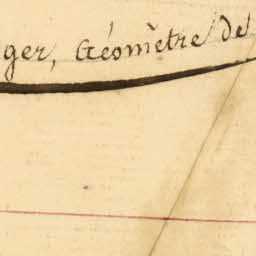 ger, Géomètre de